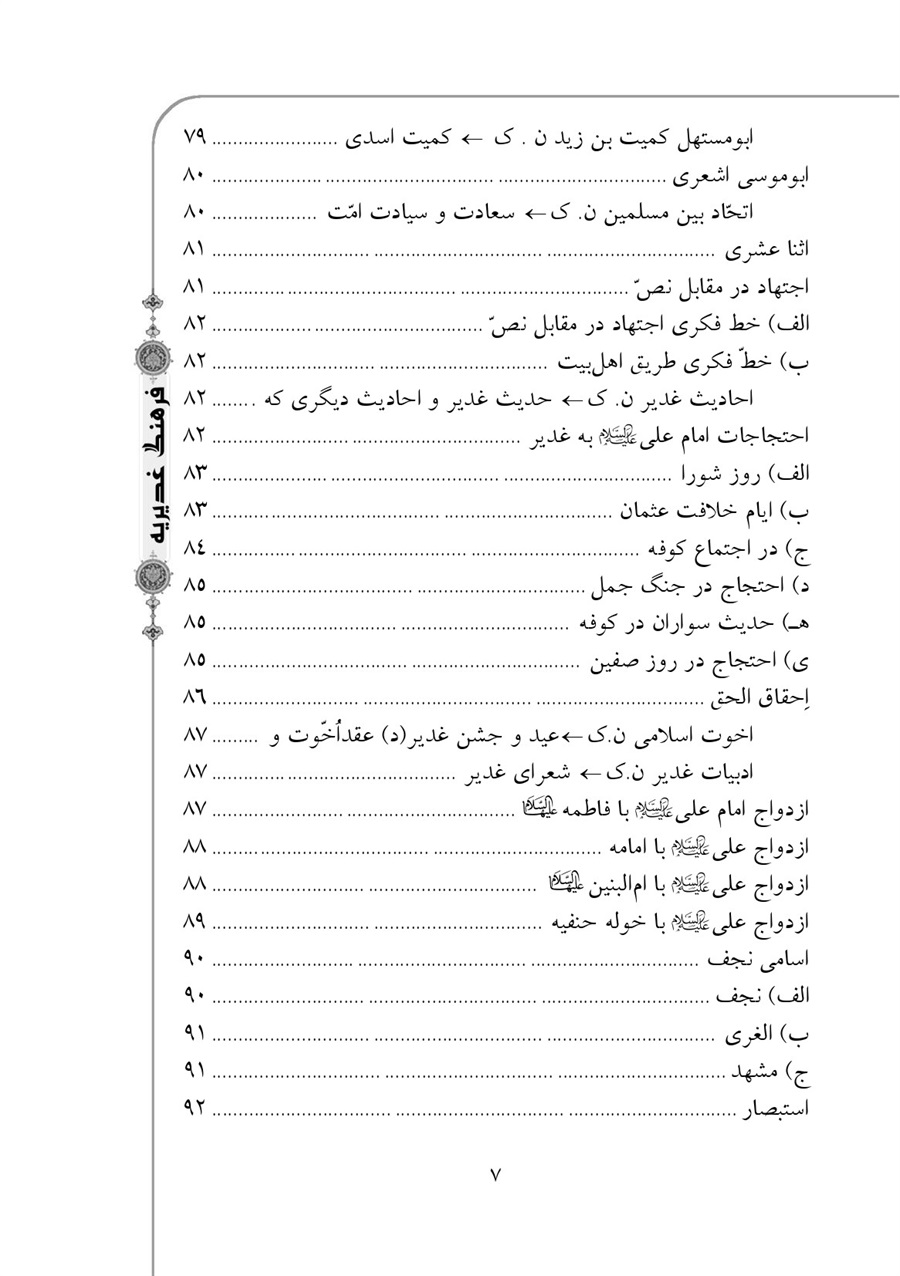 ابومستهل کمیت بن زید ن . ک ← کمیت اسدی ........................ ۷۹
ابوموسی اشعری ........................ ۸۰
اتحّاد بین مسلمین ن. ک ← سعادت و سیادت امّت .................... ۸۰
اثنا عشری ........................ ۸۱
اجتهاد در مقابل نصّ ........................ ۸۱
الف) خط فکری اجتهاد در مقابل نصّ ........................ ۸۲
ب) خطّ فکری طریق اهل‌بیت ........................ ۸۲
احادیث غدیر ن. ک ← حدیث غدیر و احادیث دیگری که ........ ۸۲
احتجاجات امام علی علیه‌السلام به غدیر ........................ ۸۲
الف) روز شورا ........................ ۸۳
ب) ایام خلافت عثمان ........................ ۸۳
ج) در اجتماع کوفه ........................ ۸۴
د) احتجاج در جنگ جمل ........................ ۸۵
هـ) حدیث سواران در کوفه ........................ ۸۵
ی) احتجاج در روز صفین ........................ ۸۵
اِحقاق الحق ........................ ۸۶
اخوت اسلامی ن.ک ← عید و جشن غدیر(د) عقداُخّوت و ......... ۸۷
ادبیات غدیر ن.ک ← شعرای غدیر ........................ ۸۷
ازدواج امام علی علیه‌السلام با فاطمه علیهاالسلام ........................ ۸۷
ازدواج علی علیه‌السلام با امامه ........................ ۸۸
ازدواج علی علیه‌السلام با ام‌البنین علیهاالسلام ........................ ۸۸
ازدواج علی علیه‌السلام با خوله حنفیه ........................ ۸۹
اسامی نجف ........................ ۹۰
الف) نجف ........................ ۹۰
ب) الغری ........................ ۹۱
ج) مشهد ........................ ۹۱
استبصار ........................ ۹۲
فرهنگ غدیریه
۷